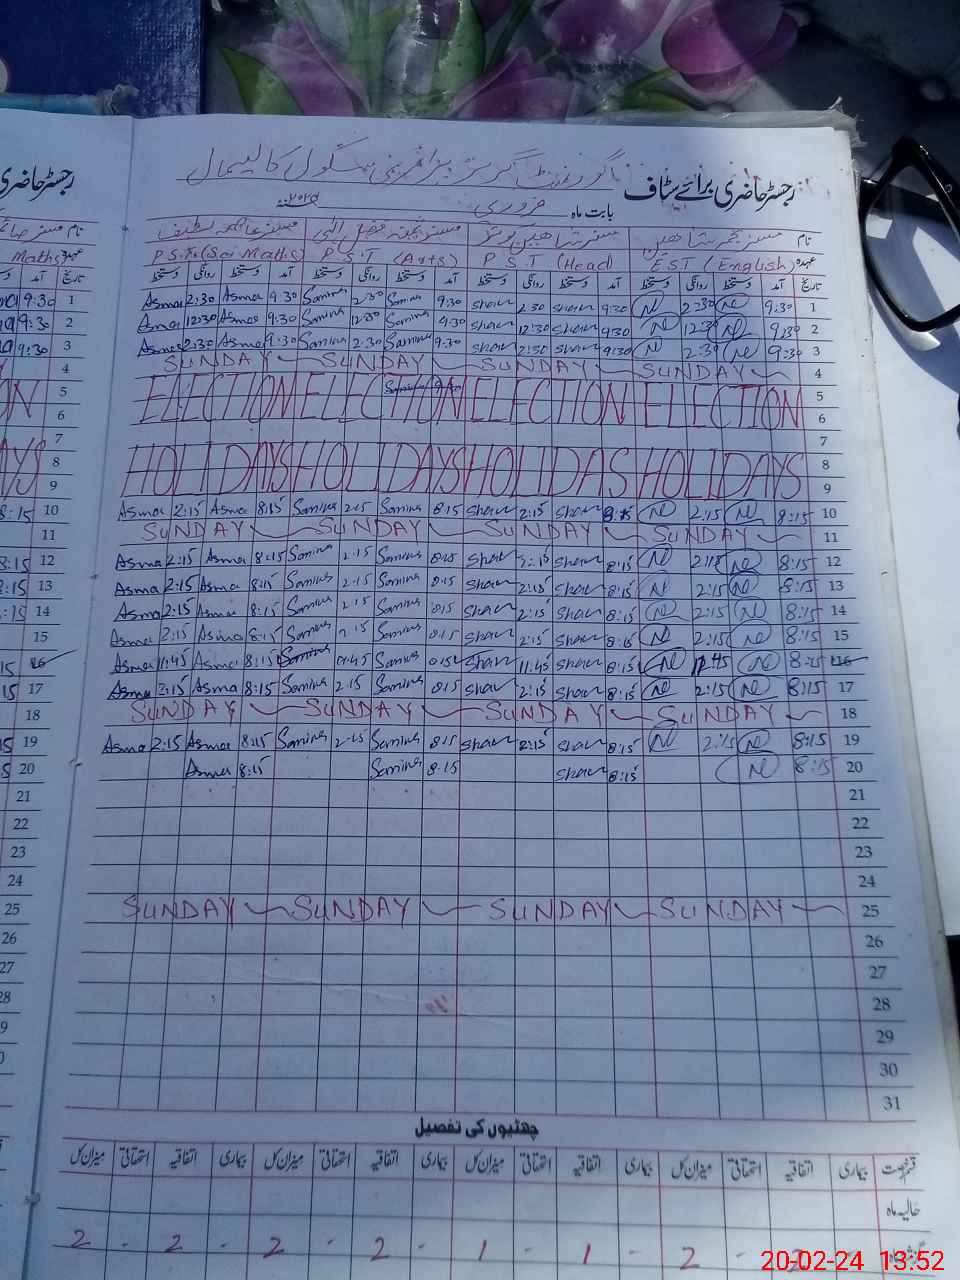 رجسٹر حاضری برائے سٹاف گورنمنٹ گرلز پرائمری سکول
بابت ماہ فروری ۲۰۲۴ء
نام مسز نجمہ شاہین مسز شاہین کوثر مسز ثمینہ فضل الہی مسز عاصمہ لطیف
عہدہ EST (English) P S T (Head) P.S.T (Arts) P.S.T (Sci Maths) Maths
تاریخ آمد دستخط روانگی دستخط آمد دستخط روانگی دستخط آمد دستخط روانگی دستخط آمد دستخط روانگی دستخط
Asma 2:30 Asma 9:30 Samina 2:30 Samina 9:30 Shaw 2:30 Shaw 9:30 Ne 2:30 Ne 9:30 1
Asma 12:30 Asma 9:30 Samina 12:30 Samina 9:30 Shaw 12:30 Shaw 9:30 Ne 12:30 Ne 9:30 2
Asma 2:30 Asma 9:30 Samina 2:30 Samina 9:30 Shaw 2:30 Shaw 9:30 Ne 2:30 Ne 9:30 3
SUNDAY SUNDAY SUNDAY SUNDAY 4
ELECTION ELECTION ELECTION ELECTION 5
6
7
HOLIDAYS HOLIDAYS HOLIDAS HOLIDAYS 8
9
Asma 2:15 Asma 8:15 Samina 2:15 Samina 8:15 Shaw 2:15 Shaw 8:15 Ne 2:15 Ne 8:15 10
SUNDAY SUNDAY SUNDAY SUNDAY 11
Asma 2:15 Asma 8:15 Samina 2:15 Samina 8:15 Shaw 2:15 Shaw 8:15 Ne 2:15 Ne 8:15 12
Asma 2:15 Asma 8:15 Samina 2:15 Samina 8:15 Shaw 2:15 Shaw 8:15 Ne 2:15 Ne 8:15 13
Asma 2:15 Asma 8:15 Samina 2:15 Samina 8:15 Shaw 2:15 Shaw 8:15 Ne 2:15 Ne 8:15 14
Asma 2:15 Asma 8:15 Samina 2:15 Samina 8:15 Shaw 2:15 Shaw 8:15 Ne 2:15 Ne 8:15 15
Asma 11:45 Asma 8:15 Samina 11:45 Samina 8:15 Shaw 11:45 Shaw 8:15 Ne 11:45 Ne 8:15 16
Asma 2:15 Asma 8:15 Samina 2:15 Samina 8:15 Shaw 2:15 Shaw 8:15 Ne 2:15 Ne 8:15 17
SUNDAY SUNDAY SUNDAY SUNDAY 18
Asma 2:15 Asma 8:15 Samina 2:15 Samina 8:15 Shaw 2:15 Shaw 8:15 Ne 2:15 Ne 8:15 19
Asma 8:15 Samina 8:15 Shaw 8:15 Ne 8:15 20
21
22
23
24
SUNDAY SUNDAY SUNDAY SUNDAY 25
26
27
28
29
30
31
چھٹیوں کی تفصیل
قسم رخصت بیماری اتفاقیہ استحقاقی میزان کل بیماری اتفاقیہ استحقاقی میزان کل بیماری اتفاقیہ استحقاقی میزان کل بیماری اتفاقیہ استحقاقی میزان کل
حالیہ ماہ
2 - 2 - 2 - 2 - 1 - 1 - 2 - 2
20-02-24 13:52